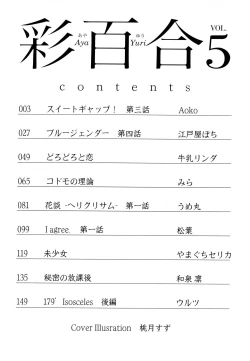 彩百合 VOL. 5
あや Aya ゆり Yuri
contents
003 スイートギャップ! 第三話 Aoko
027 ブルージェンダー 第四話 江戸屋ぽち
049 どろどろと恋 牛乳リンダ
065 コドモの理論 みら
081 花談 -ヘリクリサム- 第一話 うめ丸
099 I agree. 第一話 松葉
119 未少女 やまぐちセリカ
135 秘密の放課後 和泉 凛
149 179° Isosceles 後編 ウルツ
Cover Illusration 桃月すず